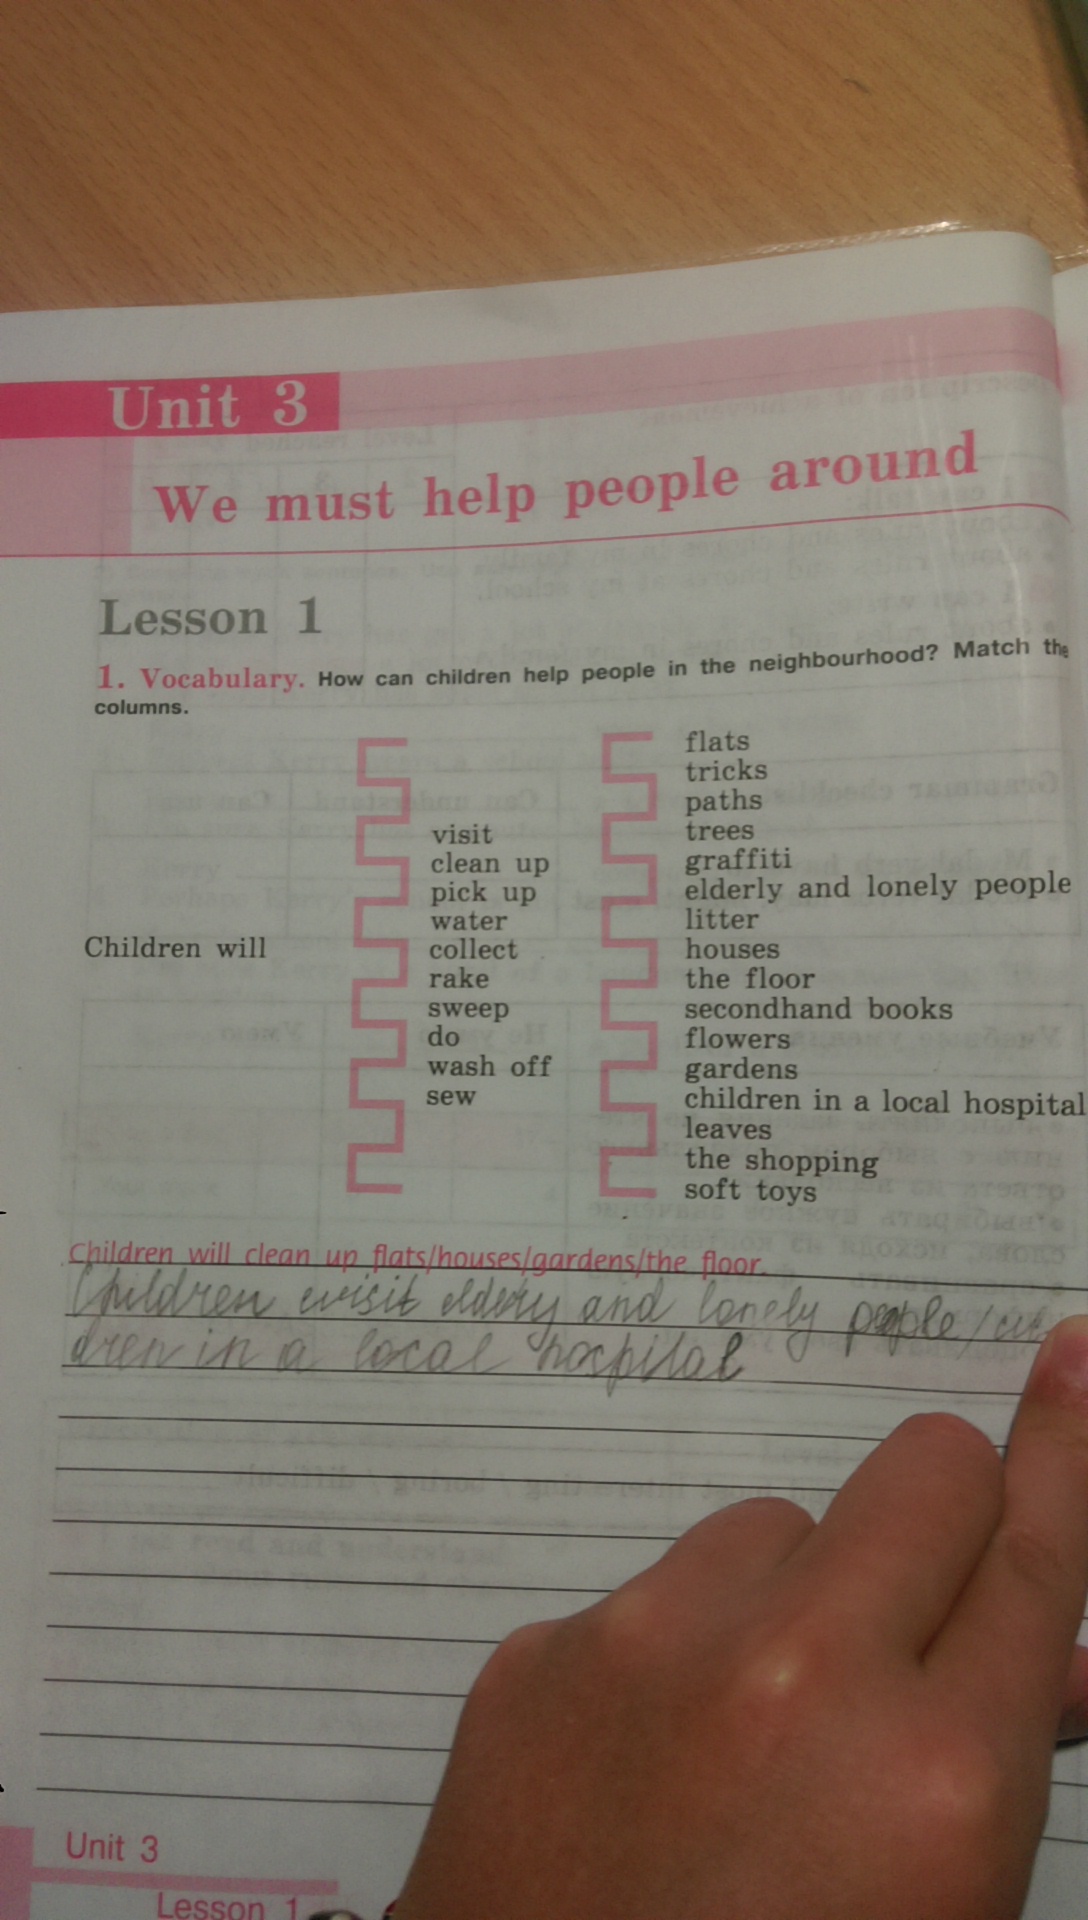 Unit 3
We must help people around
Lesson 1
1. Vocabulary. How can children help people in the neighbourhood? Match the
columns.
Children will
visit
clean up
pick up
water
collect
rake
sweep
do
wash off
sew
flats
tricks
paths
trees
graffiti
elderly and lonely people
litter
houses
the floor
secondhand books
flowers
gardens
children in a local hospital
leaves
the shopping
soft toys
Children will clean up flats/houses/gardens/the floor.
Children visit eldery and lonely people/
dren in a local hospital
Unit 3
Lesson 1